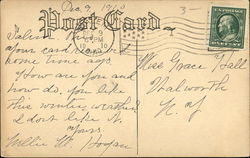 Dec. 9, 1910
Post Card
Salem
your card received
some time ago.
How are you and
how do you like
this winter weather
I dont like it.
Yours,
Nellie M. Hogan
Miss Grace Hall
Walworth
N. Y